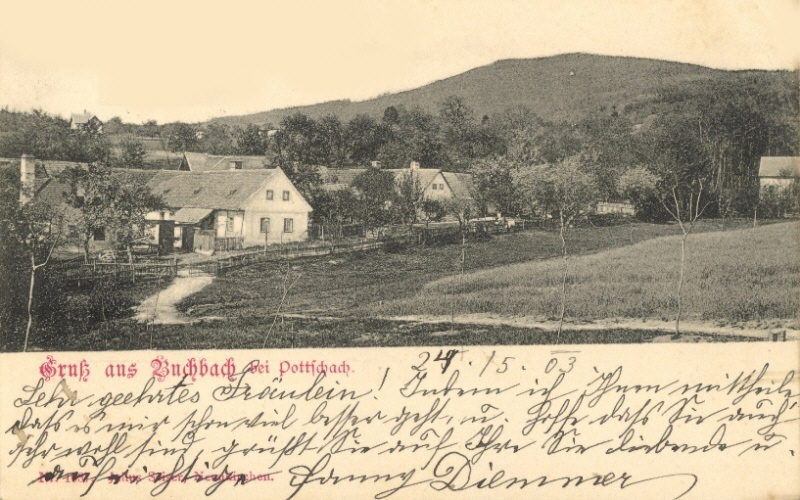 Gruß aus Buchbach bei Pottschach.
24. 15. 03
Sehr geehrtes Fräulein! Indem ich Ihnen mittheile
dass es mir schon viel besser geht, u. hoffe dass Sie auch
sehr wohl sind, grüßt Sie auf Ihre Sie liebende u.
aufrichtige Fanny Diemmer
Neunkirchen.